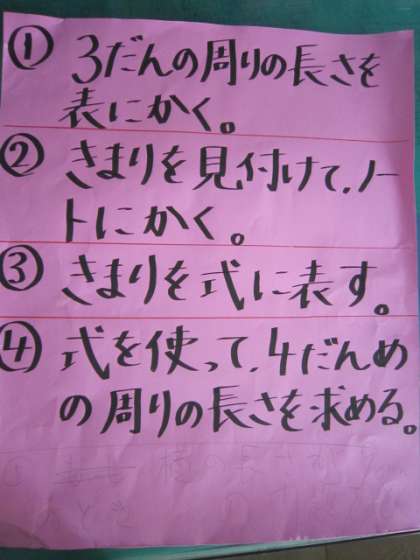 ① 3だんの周りの長さを
表にかく。
② きまりを見付けて、ノー
トにかく。
③ きまりを式に表す。
④ 式を使って、4だんめ
の周りの長さを求める。